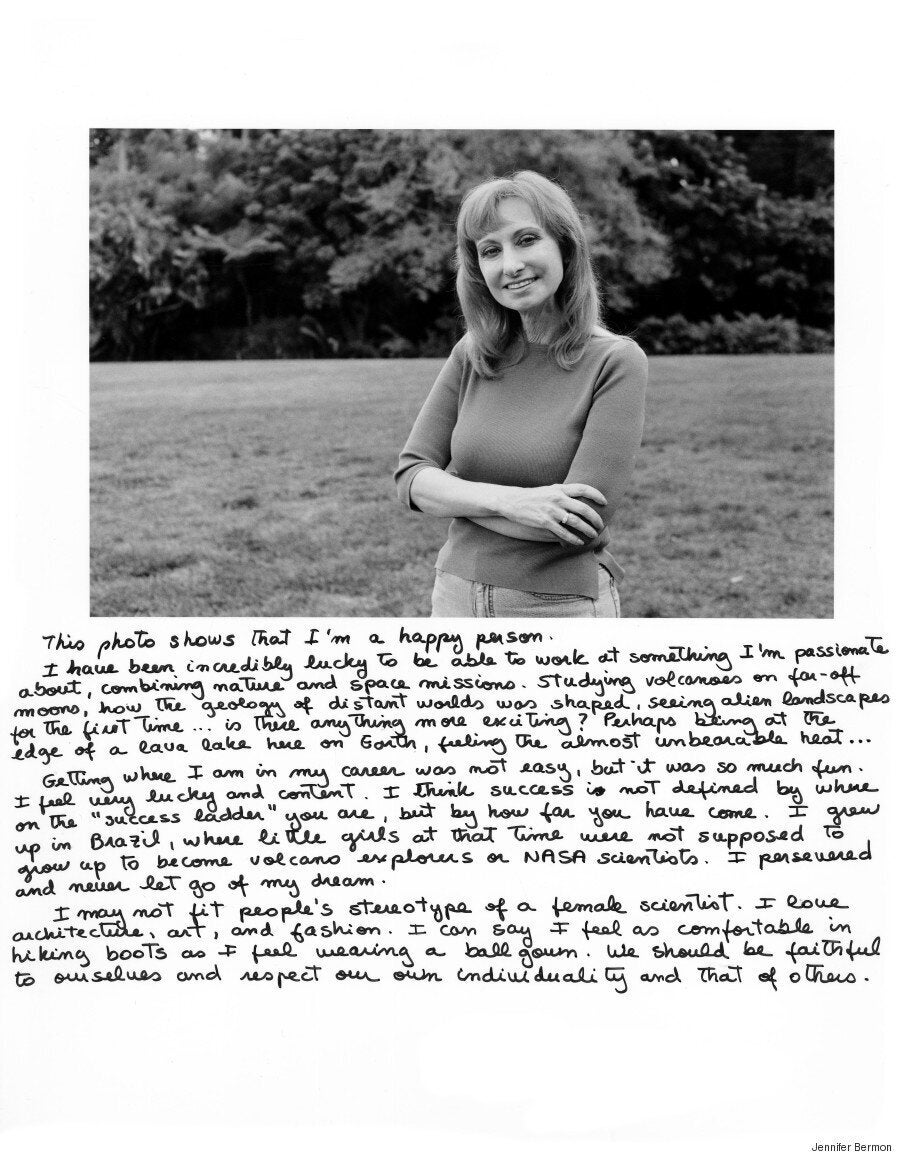 This photo shows that I'm a happy person.
I have been incredibly lucky to be able to work at something I'm passionate
about, combining nature and space missions. Studying volcanoes on far-off
moons, how the geology of distant worlds was shaped, seeing alien landscapes
for the first time ... is there anything more exciting? Perhaps being at the
edge of a lava lake here on Earth, feeling the almost unbearable heat...
Getting where I am in my career was not easy, but it was so much fun.
I feel very lucky and content. I think success is not defined by where
on the "success ladder" you are, but by how far you have come. I grew
up in Brazil, where little girls at that time were not supposed to
grow up to become volcano explorers or NASA scientists. I persevered
and never let go of my dream.
I may not fit people's stereotype of a female scientist. I love
architecture, art, and fashion. I can say I feel as comfortable in
hiking boots as I feel wearing a ball gown. We should be faithful
to ourselves and respect our own individuality and that of others.
Jennifer Bermon